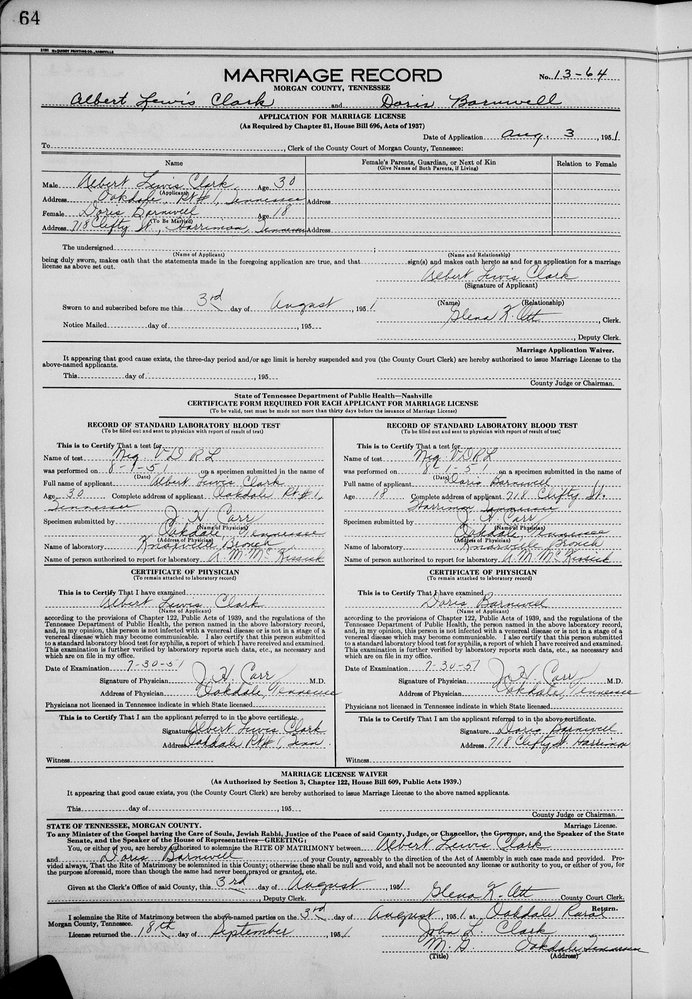 64
MARRIAGE RECORD
No. 13-64
MORGAN COUNTY, TENNESSEE
Albert Lewis Clark and Doris Barnwell
APPLICATION FOR MARRIAGE LICENSE
(As Required by Chapter 81, House Bill 696, Acts of 1937)
Date of Application Aug. 3, 1951
To, Clerk of the County Court of Morgan County, Tennessee:
Name
Female's Parents, Guardian, or Next of Kin
(Give Names of Both Parents, if Living)
Relation to Female
Male Albert Lewis Clark Age 30
(Applicant)
Address Oakdale, Rt #1, Tennessee Address
Female Doris Barnwell Age 18
(To Be Married)
Address 718 Clifty St., Harriman, Tennessee Address
The undersigned ;
(Name of Applicant) (Name and Relationship)
being duly sworn, makes oath that the statements made in the foregoing application are true, and that sign(s) and makes oath hereto as and for an application for a marriage
license as above set out.
Albert Lewis Clark
(Signature of Applicant)
(Name) (Relationship)
Sworn to and subscribed before me this 3rd day of August, 1951
Glena K. Ott, Clerk.
Notice Mailed day of, 195
, Deputy Clerk.
Marriage Application Waiver.
It appearing that good cause exists, the three-day period and/or age limit is hereby suspended and you (the County Court Clerk) are hereby authorized to issue Marriage License to the
above-named applicants.
This day of, 195
County Judge or Chairman.
State of Tennessee Department of Public Health—Nashville
CERTIFICATE FORM REQUIRED FOR EACH APPLICANT FOR MARRIAGE LICENSE
(To be valid, test must be made not more than thirty days before the issuance of Marriage License)
RECORD OF STANDARD LABORATORY BLOOD TEST
(To be filled out and sent to physician with report of result of test)
This is to Certify That a test for
Name of test Neg. VDRL
was performed on 8-1-51 on a specimen submitted in the name of
(Date)
Full name of applicant Albert Lewis Clark
Age 30 Complete address of applicant Oakdale Rt #1,
Tennessee
Specimen submitted by J. H. Carr
(Name of Physician)
Oakdale, Tennessee
(Address of Physician)
Name of laboratory Knoxville Branch
Name of person authorized to report for laboratory A. M. McKissick
CERTIFICATE OF PHYSICIAN
(To remain attached to laboratory record)
This is to Certify That I have examined
Albert Lewis Clark
(Name of Applicant)
according to the provisions of Chapter 122, Public Acts of 1939, and the regulations of the
Tennessee Department of Public Health, the person named in the above laboratory record,
and, in my opinion, this person is not infected with a venereal disease or is not in a stage of a
venereal disease which may become communicable. I also certify that this person submitted
to a standard laboratory blood test for syphilis, a report of which I have received and examined.
This examination is further verified by laboratory reports such data, etc., as necessary and
which are on file in my office.
Date of Examination 7-30-51
Signature of Physician J. H. Carr M.D.
Address of Physician Oakdale, Tennessee
Physicians not licensed in Tennessee indicate in which State licensed
This is to Certify That I am the applicant referred to in the above certificate.
Signature Albert Lewis Clark
Address Oakdale Rt #1, Tenn.
Witness
RECORD OF STANDARD LABORATORY BLOOD TEST
(To be filled out and sent to physician with report of result of test)
This is to Certify That a test for
Name of test Neg. VDRL
was performed on 8-1-51 on a specimen submitted in the name of
(Date)
Full name of applicant Doris Barnwell
Age 18 Complete address of applicant 718 Clifty St.
Harriman Tennessee
Specimen submitted by J. H. Carr
(Name of Physician)
Oakdale, Tennessee
(Address of Physician)
Name of laboratory Knoxville Branch
Name of person authorized to report for laboratory A. M. McKissick
CERTIFICATE OF PHYSICIAN
(To remain attached to laboratory record)
This is to Certify That I have examined
Doris Barnwell
(Name of Applicant)
according to the provisions of Chapter 122, Public Acts of 1939, and the regulations of the
Tennessee Department of Public Health, the person named in the above laboratory record,
and, in my opinion, this person is not infected with a venereal disease or is not in a stage of a
venereal disease which may become communicable. I also certify that this person submitted
to a standard laboratory blood test for syphilis, a report of which I have received and examined.
This examination is further verified by laboratory reports such data, etc., as necessary and
which are on file in my office.
Date of Examination 7-30-51
Signature of Physician J. H. Carr M.D.
Address of Physician Oakdale, Tennessee
Physicians not licensed in Tennessee indicate in which State licensed
This is to Certify That I am the applicant referred to in the above certificate.
Signature Doris Barnwell
Address 718 Clifty St. Harriman
Witness
MARRIAGE LICENSE WAIVER
(As Authorized by Section 3, Chapter 122, House Bill 609, Public Acts 1939.)
It appearing that good cause exists, you (the County Court Clerk) are hereby authorized to issue Marriage License to the above named applicants.
This day of, 195
County Judge or Chairman.
STATE OF TENNESSEE, MORGAN COUNTY. Marriage License.
To any Minister of the Gospel having the Care of Souls, Jewish Rabbi, Justice of the Peace of said County, Judge, or Chancellor, the Governor, and the Speaker of the State
Senate, and the Speaker of the House of Representatives—GREETING:
You, or either of you, are hereby authorized to solemnize the RITE OF MATRIMONY between Albert Lewis Clark
and Doris Barnwell of your County, agreeably to the direction of the Act of Assembly in such case made and provided. Pro-
vided always, That the Rite of Matrimony be solemnized in this County; otherwise these shall be null and void, and shall not be accounted any license or authority to you, or either of you, for
the purpose aforesaid, more than though the same had never been prayed or granted, etc.
Given at the Clerk's Office of said County, this 3rd day of August, 1951
Deputy Clerk. Glena K. Ott County Court Clerk.
Return.
I solemnize the Rite of Matrimony between the above-named parties on the 3rd day of August, 1951 at Oakdale Rural
Morgan County, Tennessee.
License returned the 18th day of September, 1951
John L. Clark
M. G. Oakdale Tennessee
(Title) (Address)